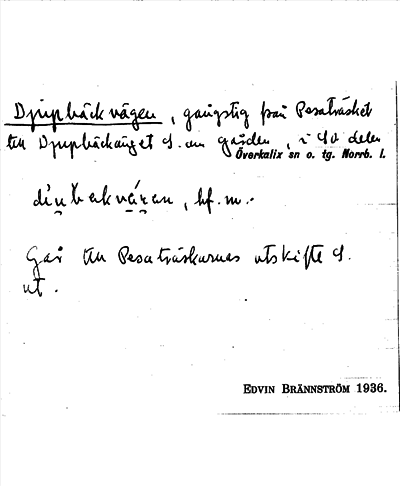 Djupbäckvägen, gångstig från Pesaträsket
till Djupbäckänget S. om gården, i SO delen
Överkalix sn o. tg. Norrb. l.
bf. m.
Går till Pesaträskarnas utskifte S.
ut.
EDVIN BRÄNNSTRÖM 1936.